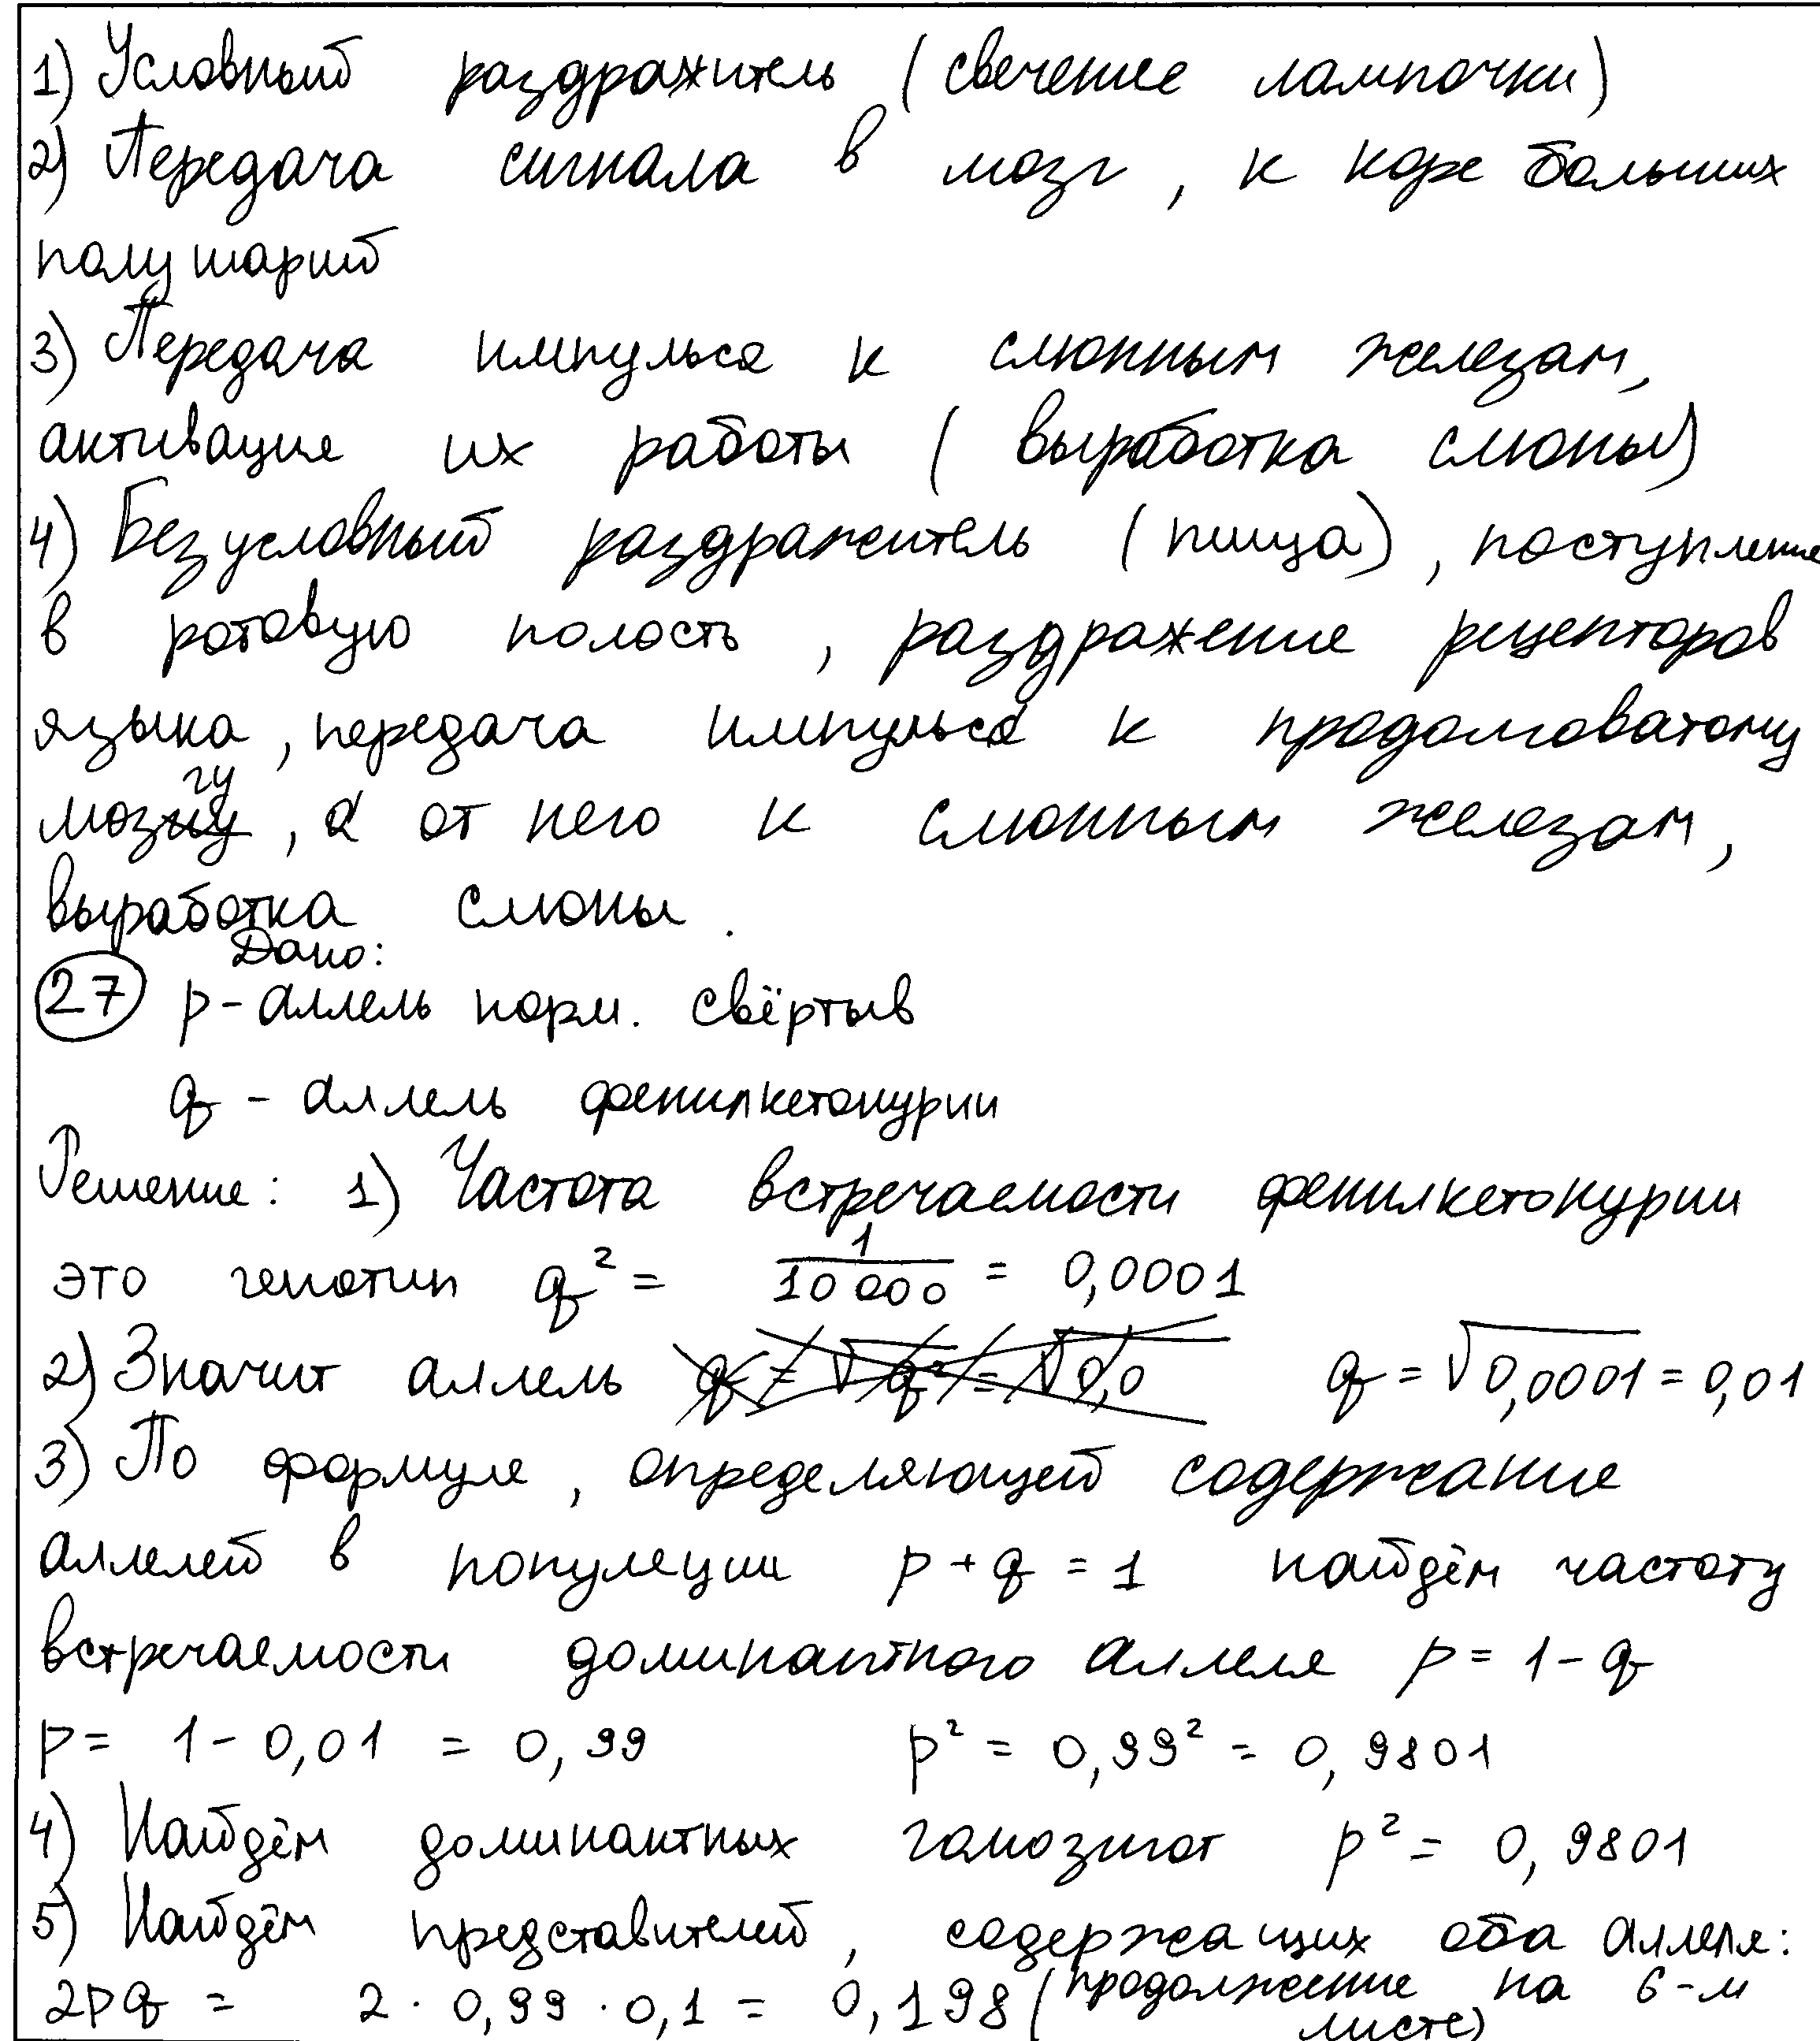 1) Условный раздражитель (свечение лампочки)
2) Передача сигнала в мозг, к коре больших
полушарий
3) Передача импульса к слюнным железам,
активация их работы (выработка слюны)
4) Безусловный раздражитель (пища), поступление
в ротовую полость, раздражение рецепторов
языка, передача импульса к продолговатому
мозгу, а от него к слюнным железам,
выработка слюны.
Дано:
27 p - аллель норм. свёртыв
q - аллель фенилкетонурии
Решение: 1) Частота встречаемости фенилкетонурии
это генотип q² = 1/10 000 = 0,0001
2) Значит аллель q = √0,0001 = 0,01
3) По формуле, определяющей содержание
аллелей в популяции p + q = 1 найдём частоту
встречаемости доминантного аллеля p = 1 - q
p = 1 - 0,01 = 0,99 p² = 0,99² = 0,9801
4) Найдём доминантных гомозигот p² = 0,9801
5) Найдём представителей, содержащих оба аллеля:
2pq = 2 · 0,99 · 0,1 = 0,198 (продолжение на 6-м
листе)